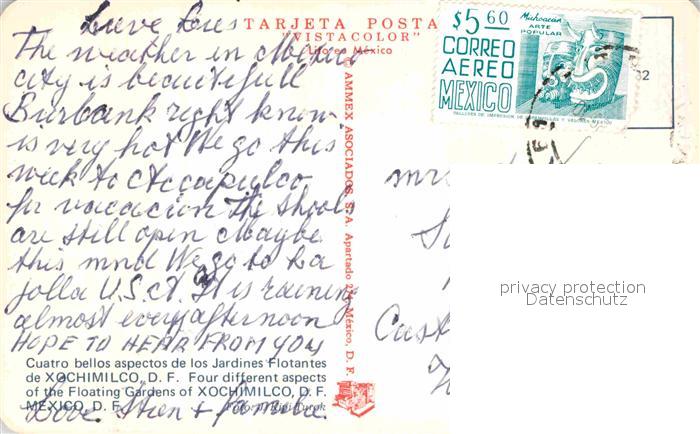 Lieve Lous
TARJETA POSTA
"VISTACOLOR"
Lito en México
The weather in Mexico
city is beautifull
Burbank right know
is very hot We go this
week to Accapulco
for vacacion The shools
are still open Maybe
this mnd We go to La
jolla U.S.A. It is raining
almost every afternoon
HOPE TO HEAR FROM YOU
Cuatro bellos aspectos de los Jardines Flotantes
de XOCHIMILCO, D. F. Four different aspects
of the Floating Gardens of XOCHIMILCO, D. F.
MEXICO, D. F.
Love Stien + familie
© AMMEX ASOCIADOS, S. A. Apartado México, D. F.
$5 60
Michoacán
ARTE
POPULAR
CORREO
AEREO
MEXICO
TALLERES DE IMPRESION DE ESTAMPILLAS Y VALORES MEXICO
32
mr
Cast
privacy protection
Datenschutz